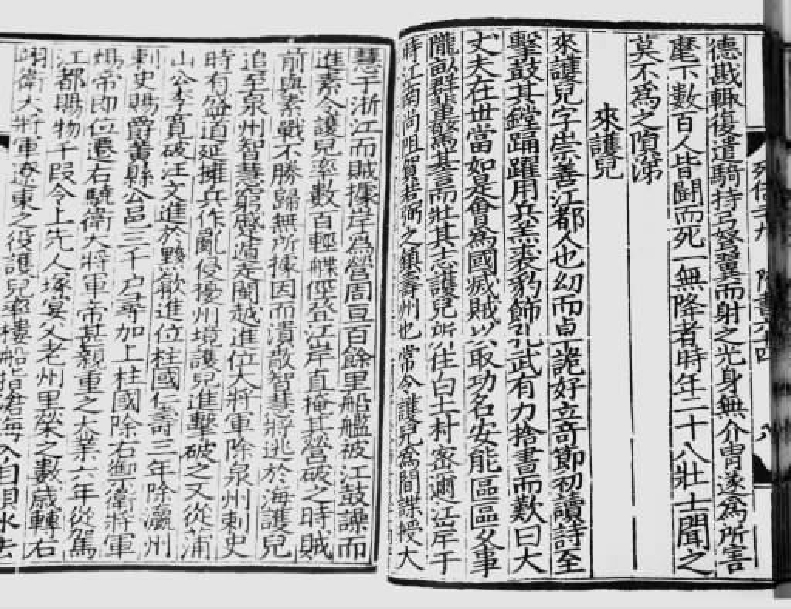 列傳二九 隋書六十四 八
德戡輙復遣騎持弓弩翼而射之光身無介冑遂爲所害
麾下數百人皆鬬而死一無降者時年二十八壯士聞之
莫不爲之隕涕
來護兒
來護兒字崇善江都人也幼而卓詭好立奇節初讀詩至
擊鼓其鏜踊躍用兵羔裘豹飾孔武有力捨書而歎曰大
丈夫在世當如是會爲國滅賊以取功名安能區區久事
隴畝群輩驚其言而壯其志護兒所住白土村密邇江岸于
時江南尚阻賀若弼之鎮壽州也常令護兒爲間諜授大
慧于浙江而賊據岸爲營周亘百餘里船艦被江鼓譟而
進素令護兒率數百輕艓徑登江岸直掩其營破之時賊
前與素戰不勝歸無所據因而潰散智慧將逃於海護兒
追至泉州智慧窮蹙遁走閩越進位大將軍除泉州刺史
時有盛道延擁兵作亂侵擾州境護兒進擊破之又從蒲
山公李寬破汪文進於黟歙進位柱國仁壽三年除瀛州
刺史賜爵黃縣公邑三千戶尋加上柱國除右禦衛將軍
煬帝即位遷右驍衛大將軍帝甚親重之大業六年從駕
江都賜物千段令上先人塚宴父老州里榮之數歲轉右
翊衛大將軍遼東之役護兒率樓船指滄海入自浿水去